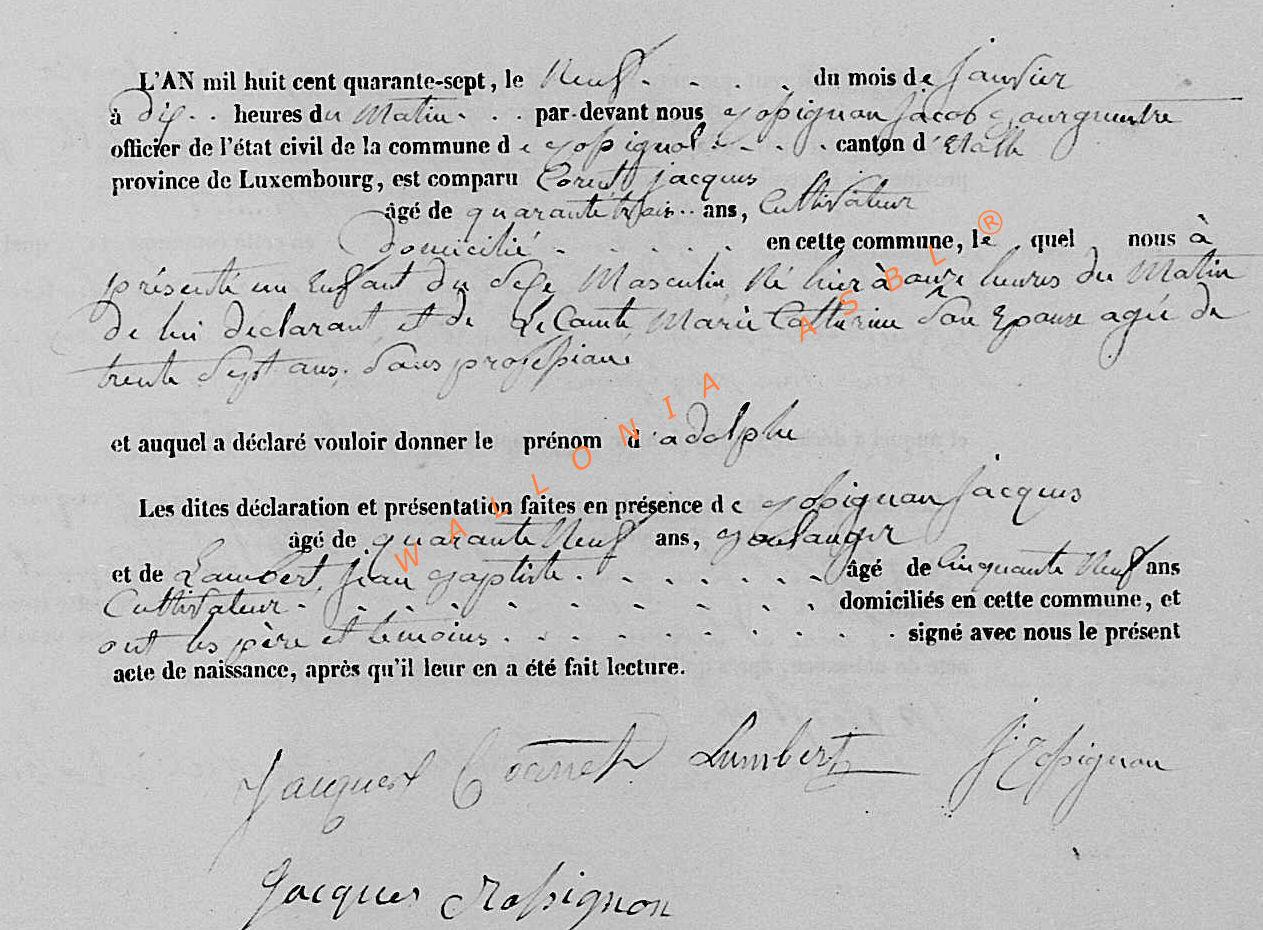 L'AN mil huit cent quarante-sept, le Neuf . . . . du mois de janvier
à dix . . heures du Matin . . par-devant nous Rossignon Jacob Bourguemtre
officier de l'état civil de la commune de Rossignol . . . . canton d'Etalle
province de Luxembourg, est comparu jacques
âgé de quarante trois .. ans, Cultivateur
Domicilié . . . . . . en cette commune, le quel nous à
présenté un Enfant du Sexe Masculin Né hier à onze heures du Matin
de lui déclarant et de LeComte Marie Catherine Son Epouse agée de
trente Sept ans. Sans profession
et auquel a déclaré vouloir donner le prénom d'adolphe
Les dites déclaration et présentation faites en présence de Rossignon Jacques
âgé de quarante Neuf ans, Boulanger
et de Lambert Jean Baptiste . . . . . . . âgé de Cinquante Neuf ans
Cultivateur . . . . . . . . . . domiciliés en cette commune, et
ont les père et temoins . . . . . . . . signé avec nous le présent
acte de naissance, après qu'il leur en a été fait lecture.
Jacques Lambert J Rossignon
Jacques Rossignon
WALLONIA ASBL ®